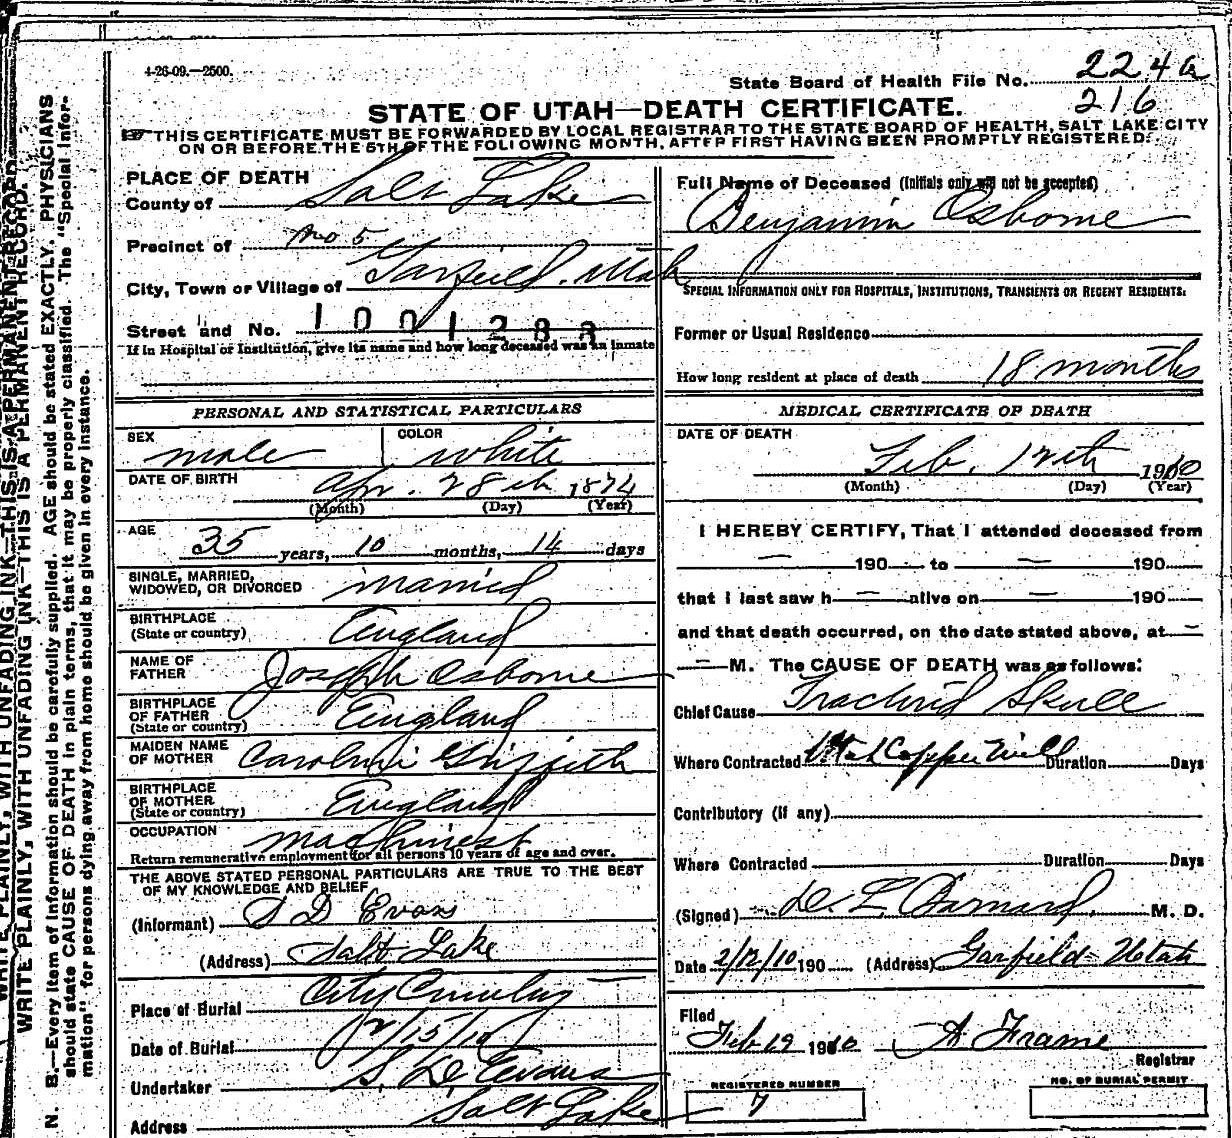 4-26-09.—2500.
State Board of Health File No. 224a
216
STATE OF UTAH—DEATH CERTIFICATE.
THIS CERTIFICATE MUST BE FORWARDED BY LOCAL REGISTRAR TO THE STATE BOARD OF HEALTH, SALT LAKE CITY
ON OR BEFORE THE 5TH OF THE FOLLOWING MONTH, AFTER FIRST HAVING BEEN PROMPTLY REGISTERED.
WRITE PLAINLY, WITH UNFADING INK—THIS IS A PERMANENT RECORD.
N. B.—Every item of information should be carefully supplied. AGE should be stated EXACTLY. PHYSICIANS
should state CAUSE OF DEATH in plain terms, that it may be properly classified. The "Special Infor-
mation" for persons dying away from home should be given in every instance.
PLACE OF DEATH
County of Salt Lake
Precinct of No 5
City, Town or Village of Garfield. Utah
Street and No. 1001288
If in Hospital or Institution, give its name and how long deceased was an inmate
PERSONAL AND STATISTICAL PARTICULARS
SEX male COLOR white
DATE OF BIRTH Apr. 28th 1874
(Month) (Day) (Year)
AGE 35 years, 10 months, 14 days
SINGLE, MARRIED,
WIDOWED, OR DIVORCED married
BIRTHPLACE
(State or country) England
NAME OF
FATHER Joseph Osborne
BIRTHPLACE
OF FATHER
(State or country) England
MAIDEN NAME
OF MOTHER Caroline Griffith
BIRTHPLACE
OF MOTHER
(State or country) England
OCCUPATION machinest
Return remunerative employment for all persons 10 years of age and over.
THE ABOVE STATED PERSONAL PARTICULARS ARE TRUE TO THE BEST
OF MY KNOWLEDGE AND BELIEF
(Informant) S D Evans
(Address) Salt Lake
Place of Burial City
Date of Burial 2/15/10
Undertaker S. D. Evans
Address Salt Lake
Full Name of Deceased (Initials only will not be accepted)
Benjamin Osborne
SPECIAL INFORMATION ONLY FOR HOSPITALS, INSTITUTIONS, TRANSIENTS OR RECENT RESIDENTS:
Former or Usual Residence
How long resident at place of death 18 months
MEDICAL CERTIFICATE OF DEATH
DATE OF DEATH
Feb. 12th 1910
(Month) (Day) (Year)
I HEREBY CERTIFY, That I attended deceased from
— 190 to — 190
that I last saw h — alive on — 190
and that death occurred, on the date stated above, at —
— M. The CAUSE OF DEATH was as follows:
Chief Cause Fractured Skull
Where Contracted Utah Copper Mill Duration Days
Contributory (if any)
Where Contracted Duration Days
(Signed) L. Barnard. M. D.
Date 2/12/10 190 (Address) Garfield Utah
Filed
Feb 19 1910 A Frame
Registrar
REGISTERED NUMBER
7
NO. OF BURIAL PERMIT